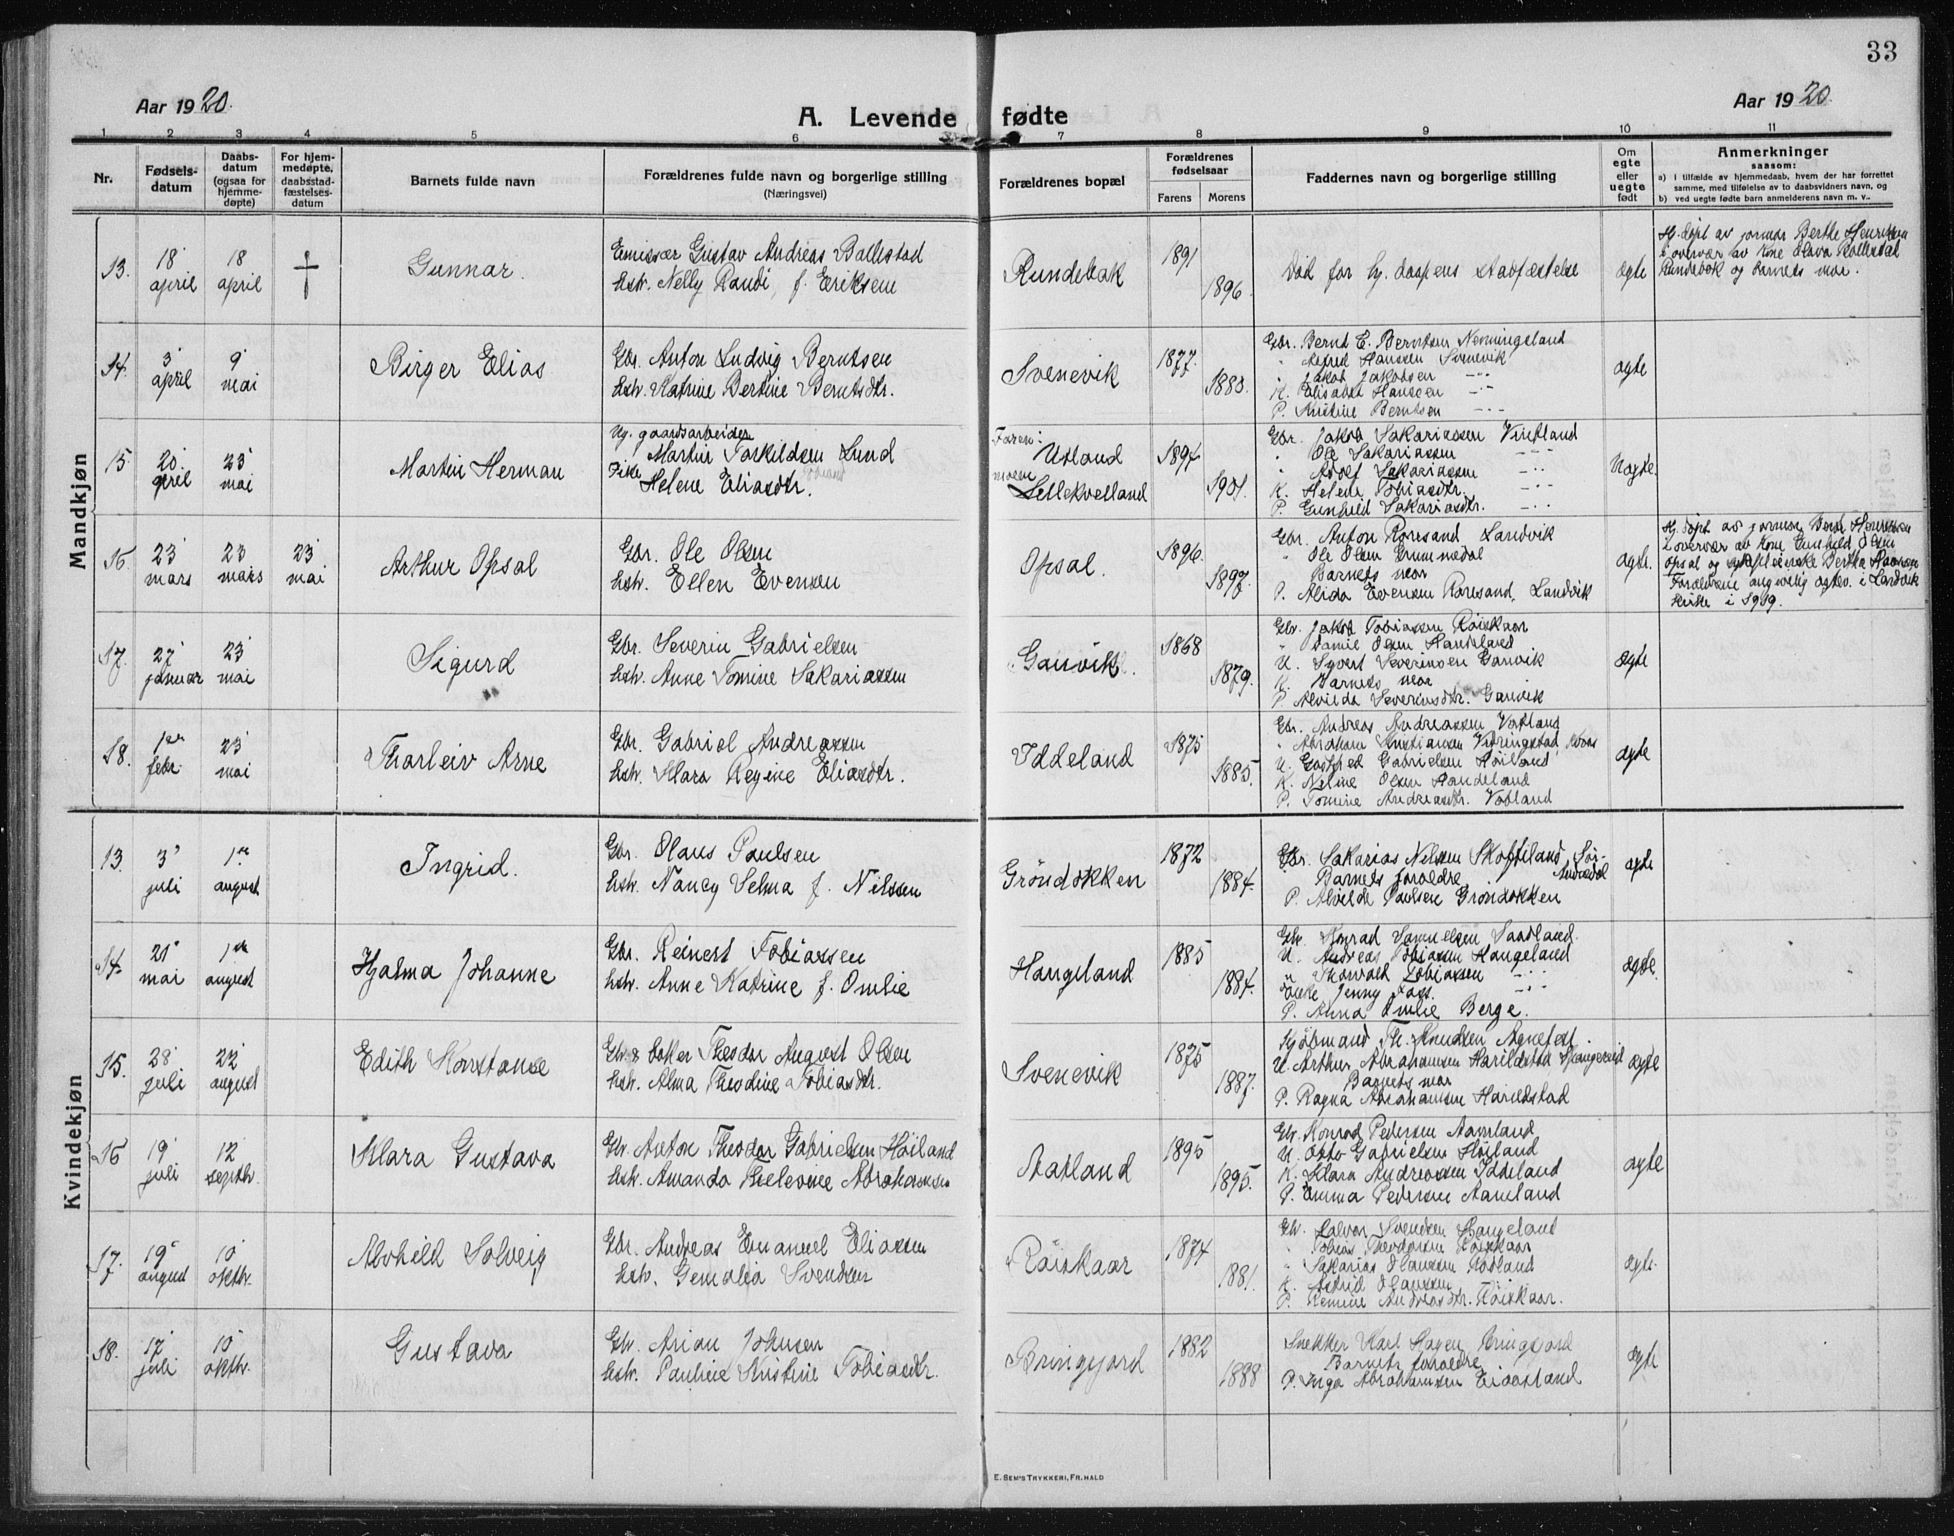 33
Aar 1920.
A. Levende fødte
Aar 1920.
1 2 3 4 5 6 7 8 9 10 11
Nr.
Fødsels-
datum
Daabs-
datum
(ogsaa for
hjemme-
døpte)
For hjem-
medøpte,
daabsstad-
fæstelses-
datum
Barnets fulde navn
Forældrenes fulde navn og borgerlige stilling
(Næringsvei)
Forældrenes bopæl
Forældrenes
fødselsaar
Farens
Morens
Faddernes navn og borgerlige stilling
Om
egte
eller
uegte
født
Anmerkninger
saasom:
a) i tilfælde av hjemmedaab, hvem der har forrettet
samme, med tilføielse av to daabsvidners navn, og
b) ved uegte fødte barn anmelderens navn m. v..
Mandkjøn
13. 18 april 18 april † Gunnar.
Emissær Gustav Andreas Ballestad
Hstr. Nelly Randi, f. Eriksen
Rundebak 1891 1896.
Död for hj. daapens stadfæstelse
ægte
Hj. döpt av jormor Berthe Henriksen
i overvær av Kone Olava Rollestad
Rundebok og barnets mor.
14. 3 april 9 mai Birger Elias
Gbr. Anton Ludvig Berntsen
Hstr. Katrine Bertine Berntsdtr.
Svenevik 1877. 1883.
Gbr. Bernt E. Berntsen Nenningsland
" Alfred Hanssen Svenevik
" Jakob Jakobsen -"-
K. Elisabet Hanssen -"-
P. Kristine Berntsen -"-
ægte
15 20. april 23 mai Martin Herman
Ug. gaardsarbeider
Martin Torkildsen Lund
Pike Helene Eliasdtr.
Faren: Utland
moren Lillekvelland
1897 1901.
Gbr. Jakob Sakariassen Vintland
" Ole Sakariassen -"-
" Adolf Sakariassen -"-
K. Helene Tobiasdtr. -"-
P. Gunhild Sakariasdtr. -"-
Uægte.
16. 23 mars 23 mars 23 mai Arthur Opsal
Gbr. Ole Olsen
Hstr. Ellen Evensen
Opsal. 1896. 1897.
Gbr. Anton Roresand Landvik
" Ole Olsen Grummedal
Barnets mor
P. Alida Evensen Roresand, Landvik
ægte.
Hj. döpt av jormor Berte Henriksen
i overvær av Kone Gunhild Olsen
Opsal og sykepleierske Bertha Hanssen
Forældrene angivelig ægtev. i Landvik
Kirke i 1919.
17. 27 januar 23 mai Sigurd
Gbr. Severin Gabrielsen
Hstr. Anne Tomine Sakariassen
Ganvik. 1868 1879.
Gbr. Jakob Tobiassen Röiskaar
" Daniel Olsen Handeland
U. Syvert Severinsen Ganvik
K. Barnets mor
P. Alvilda Severinsdtr. Ganvik
ægte
18. 1ste febr. 23 mai Tharleiv Arne
Gbr. Gabriel Andreassen
Hstr. Klara Regine Eliasdtr.
Iddeland 1875 1885.
Gbr. Andreas Andreassen Vatland
" Abraham Kristiansen Vitringstad, Kvaas
U. Gotfred Gabrielsen Höiland
K. Neline Olsen Handeland
P. Tomine Andreasdtr. Vatland
ægte
Kvindekjøn
13. 3 juli 1ste august Ingrid.
Gbr. Olaus Paulsen
Hstr. Nancy Selma f. Nilssen
Gröndokken 1872 1884.
Gbr. Sakarias Nelssen Skofteland, Sör-
Barnets forældre Audnedal
P. Alvilde Paulsen Gröndokken
ægte
14. 21 mai 1ste august Hjalma Johanne
Gbr. Reinert Tobiassen
Hstr. Anne Katrine f. Omlie
Haugeland 1885 1884.
Gbr. Konrad Samuelsen Vaadland.
U. Andreas Tobiassen Haugeland
" Thorvald Tobiassen -"-
Pike Jenny Aas. -"-
P. Anna Omlie Berge.
ægte.
15. 28 juli 22 august Edith Konstanse
Gbr. & baker Theodor August Olsen
Hstr. Alma Theodine Tobiasdtr.
Svenevik 1875 1887.
Kjöbmand Th. Knudsen Agnefest.
U. Arthur Abrahamsen Harildstad Spangereid
Barnets mor
P. Ragna Abrahamsen Harildstad
ægte
16 19 juli 12 septbr. Klara Gustava
Gbr. Anton Theodor Gabrielsen Höiland
Hstr. Amanda Helevine Abrahamsen
Aatland 1895 1895.
Gbr. Konrad Pedersen Aamland
U. Otto Gabrielsen Höiland
K. Klara Andreassen Iddeland
P. Emma Pedersen Aamland
ægte
17. 19 august 10 oktbr. Alvhild Solveig
Gbr. Andreas Emanuel Eliassen
Hstr. Gemalia Svendsen
Röiskaar 1874 1881.
Gbr. Halvor Svendsen Haugeland
" Tobias Theodorsen Röiskaar
" Sakarias Olaussen Rödland
K. Astrid Olaussen
P. Remine Andreasdtr. Röiskaar.
ægte.
18. 17 juli 10 oktbr. Gustava
Gbr. Arian Johnsen
Hstr. Pauline Kristine Tobiasdtr.
Bringsjord 1882 1888
Snekker Karl Hagen Bringsjord
Barnets forældre
P. Inga Abrahamsen
ægte
E. SEM'S TRYKKERI, FR. HALD